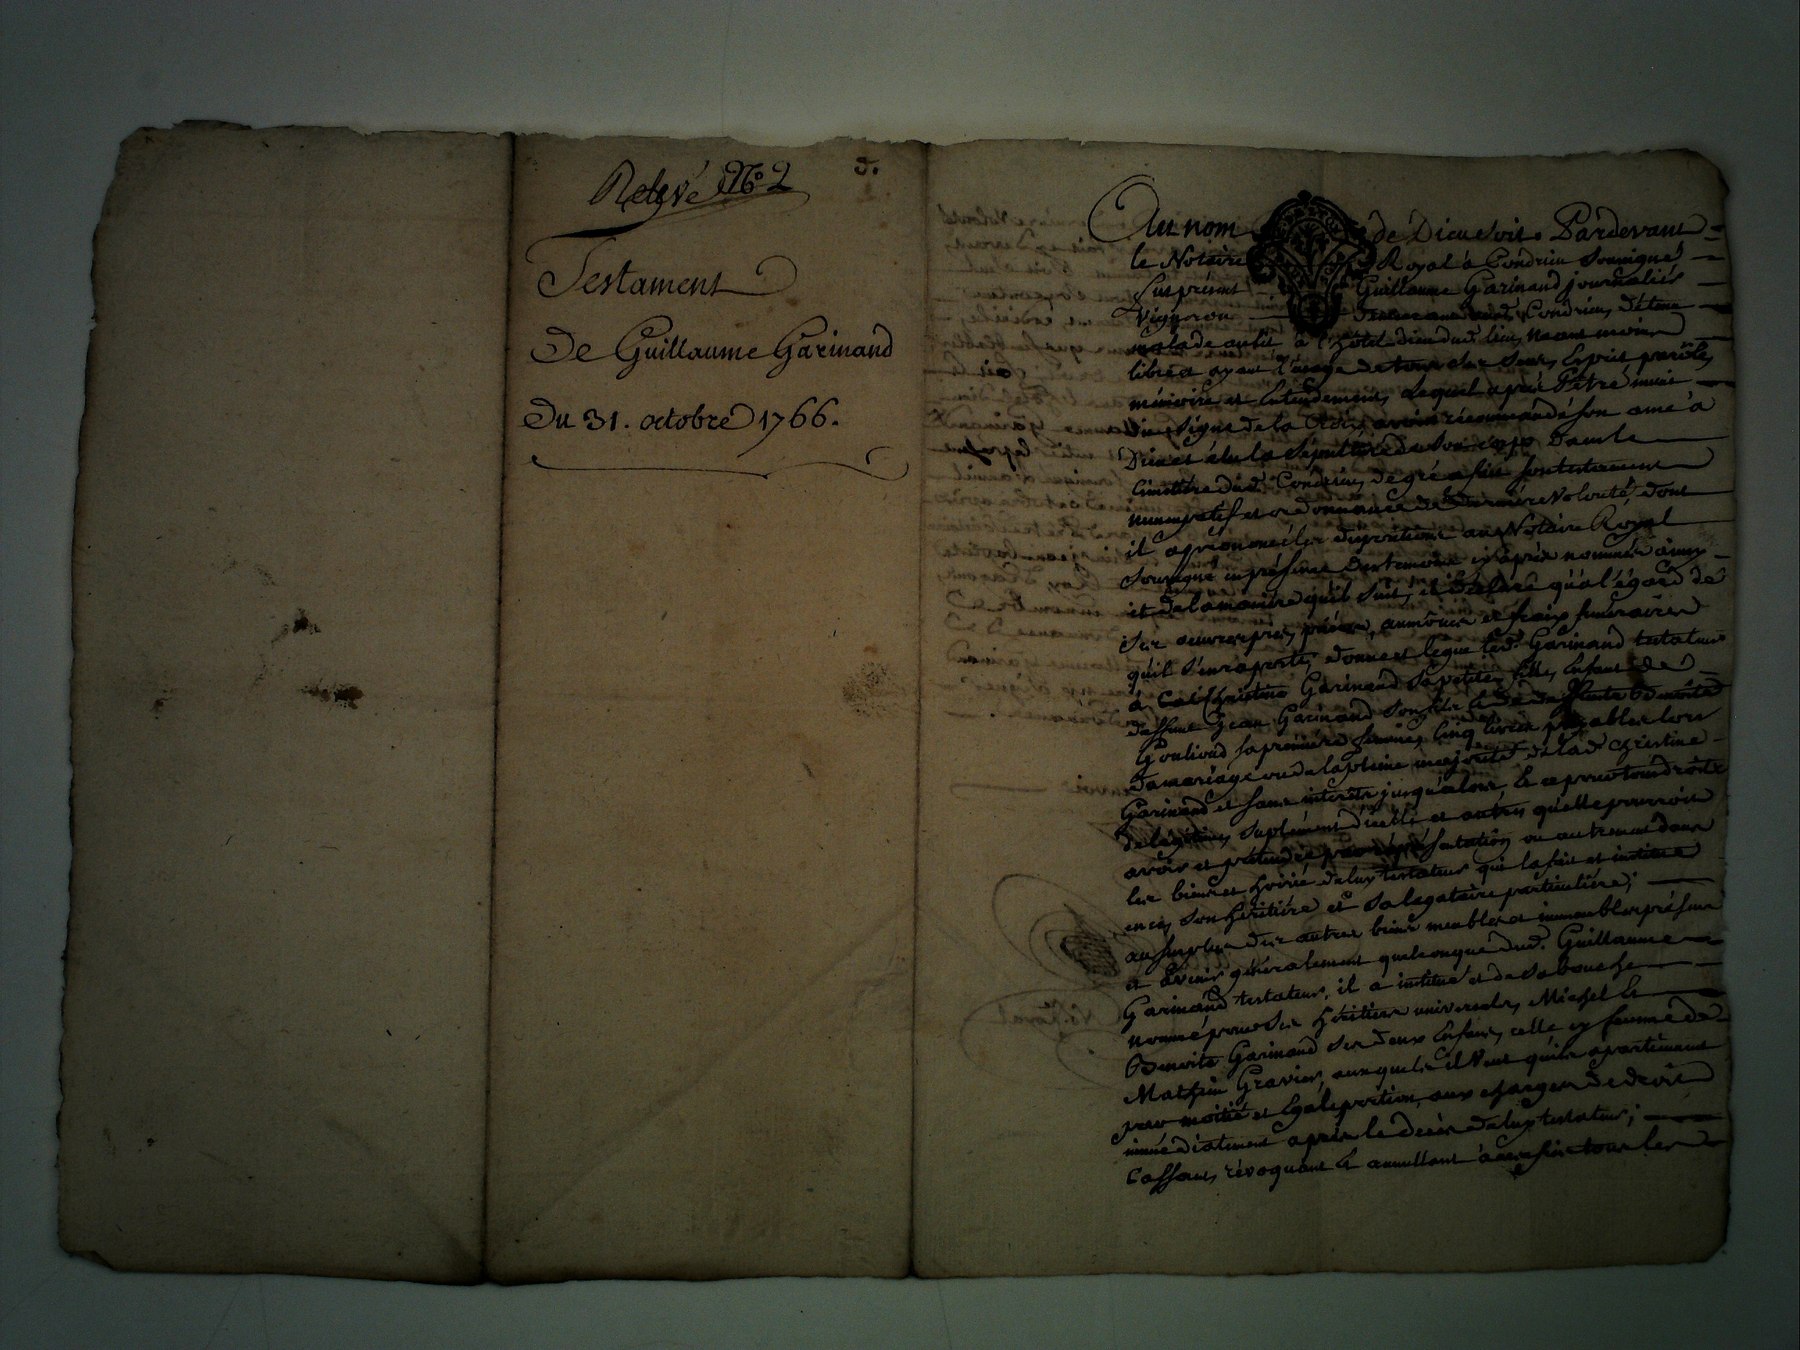 Relevé N.º 2
Testament
De Guillaume Garinand
Du 31. octobre 1766.
Au nom de Dieu soit. Pardevant
le Notaire Royal à Condrieu soussigné
fut présent Guillaume Garinand journalier
vigneron Condrieu, détenu
malade au lit à l'hotel dieu dud. lieu, néant moins
libre ayant l'usage de tous ses sens, Esprit, parôle,
mémoire et Entendement, lequel après s'être muni
du signe de la Croix, avoir récommandé son ame à
Dieu et élu la sépulture de son corps dans le
Cimetière dud. Condrieu, de gré a fait son testament
nuncupatif et ordonnance de dernière volonté, dont
il a prononcé les dispositions au Notaire Royal
soussigné en présence des temoins cy après nommés ainsy
et de la manière qu'il suit, et déclaré qu'a l'égard de
ses oeuvres pies, prières, aumônes et fraix funéraires
qu'il s'en raporte, donne et legue led. Garinand testateur
à Christine Garinand sa petite fille, Enfant de
deffunt Jean Garinand son fils et de Benoite
Goutioud sa première femme, cinq livres payables lors
du mariage ou de la pleine majorité de lad. Christine
Garinand et sans interets jusqu'alors, et ce pour tous droits
de légitime, suplément d'icelle, et autres qu'elle pourroit
avoir et prétendre par représentation ou autrement dans
les biens et hoirie dud. testateur qui la fait et institue
en ce, son héritière et sa legataire particulière;
au surplus des autres biens meubles et immeubles présens
et avenir généralement quelconques dud. Guillaume
Garinand testateur, il a institué et de sa bouche
nommé pour ses héritiers universels, Michel et
Benoite Garinand ses deux Enfans, celle cy femme de
Mathieu Gravier, auxquels il veut qu'ils apartiennent
par moitié et Egale portion, aux charges de droit
immédiatement après le décès dud. testateur;
Cassant, révoquant et annullant à ces fins tous les